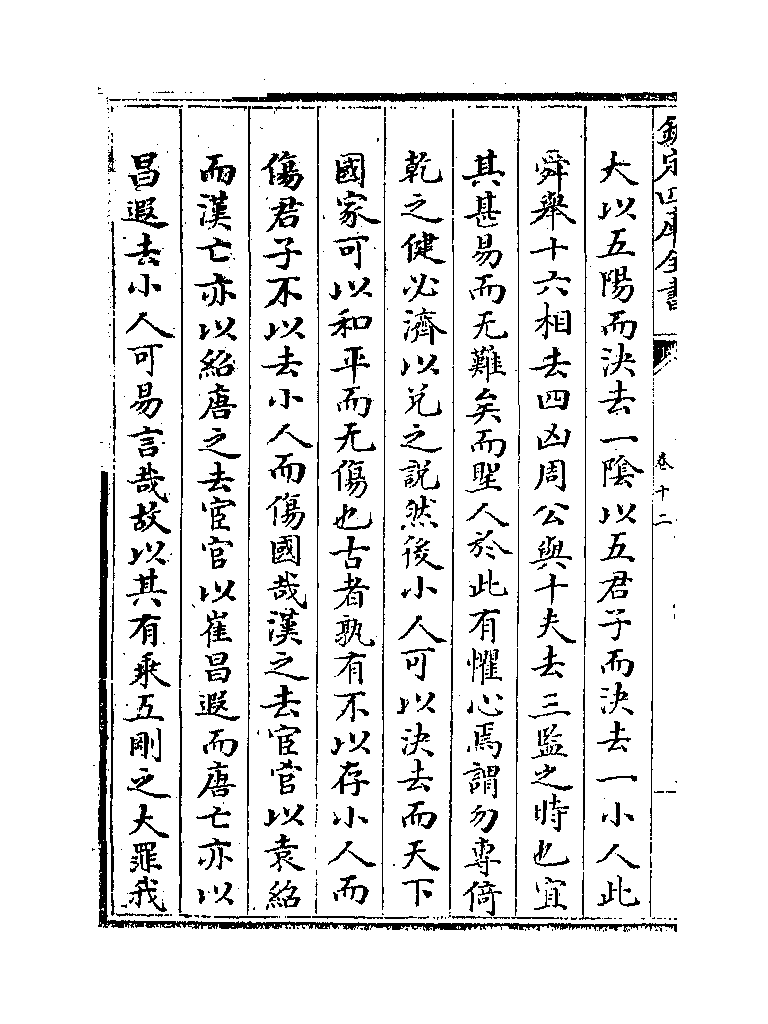 欽定四庫全書
卷十二
大以五陽而決去一陰以五君子而決去一小人此
舜舉十六相去四凶周公與十夫去三監之時也宜
其甚易而无難矣而聖人於此有懼心焉謂勿專倚
乾之健必濟以兌之說然後小人可以決去而天下
國家可以和平而无傷也古者孰有不以存小人而
傷君子不以去小人而傷國哉漢之去宦官以袁紹
而漢亡亦以紹唐之去宦官以崔昌遐而唐亡亦以
昌遐去小人可易言哉故以其有乘五剛之大罪我